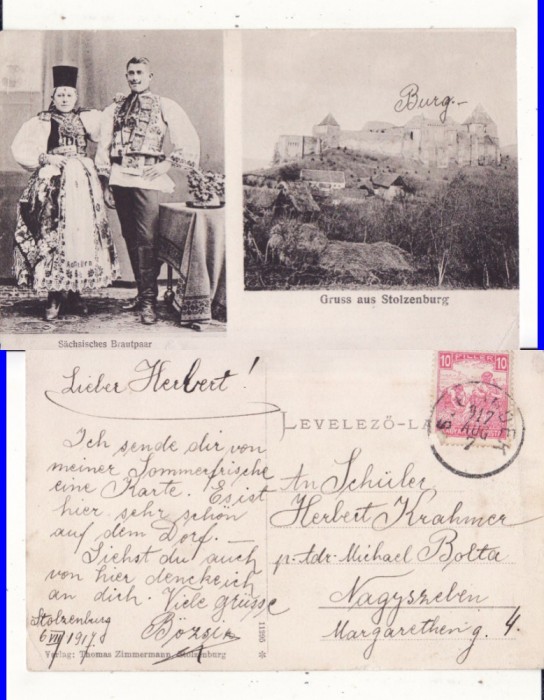 Burg.-
Gruss aus Stolzenburg
Sächsisches Brautpaar
Lieber Herbert!
Ich sende dir von
meiner Sommerfrische
eine Karte. Es ist
hier sehr schön
auf dem Dorf. —
Siehst du auch
von hier denck ich
an dich. Viele Grüsse
Bözsi
Stolzenburg
6 VIII 1917.
Verlag: Thomas Zimmermann, Stolzenburg
11395
LEVELEZŐ-LA
10 FILLÉR 10
917 AUG
An Schüler
Herbert Krahmer
p. Adr. Michael Bolta
Nagyszeben
Margaretheng. 4.